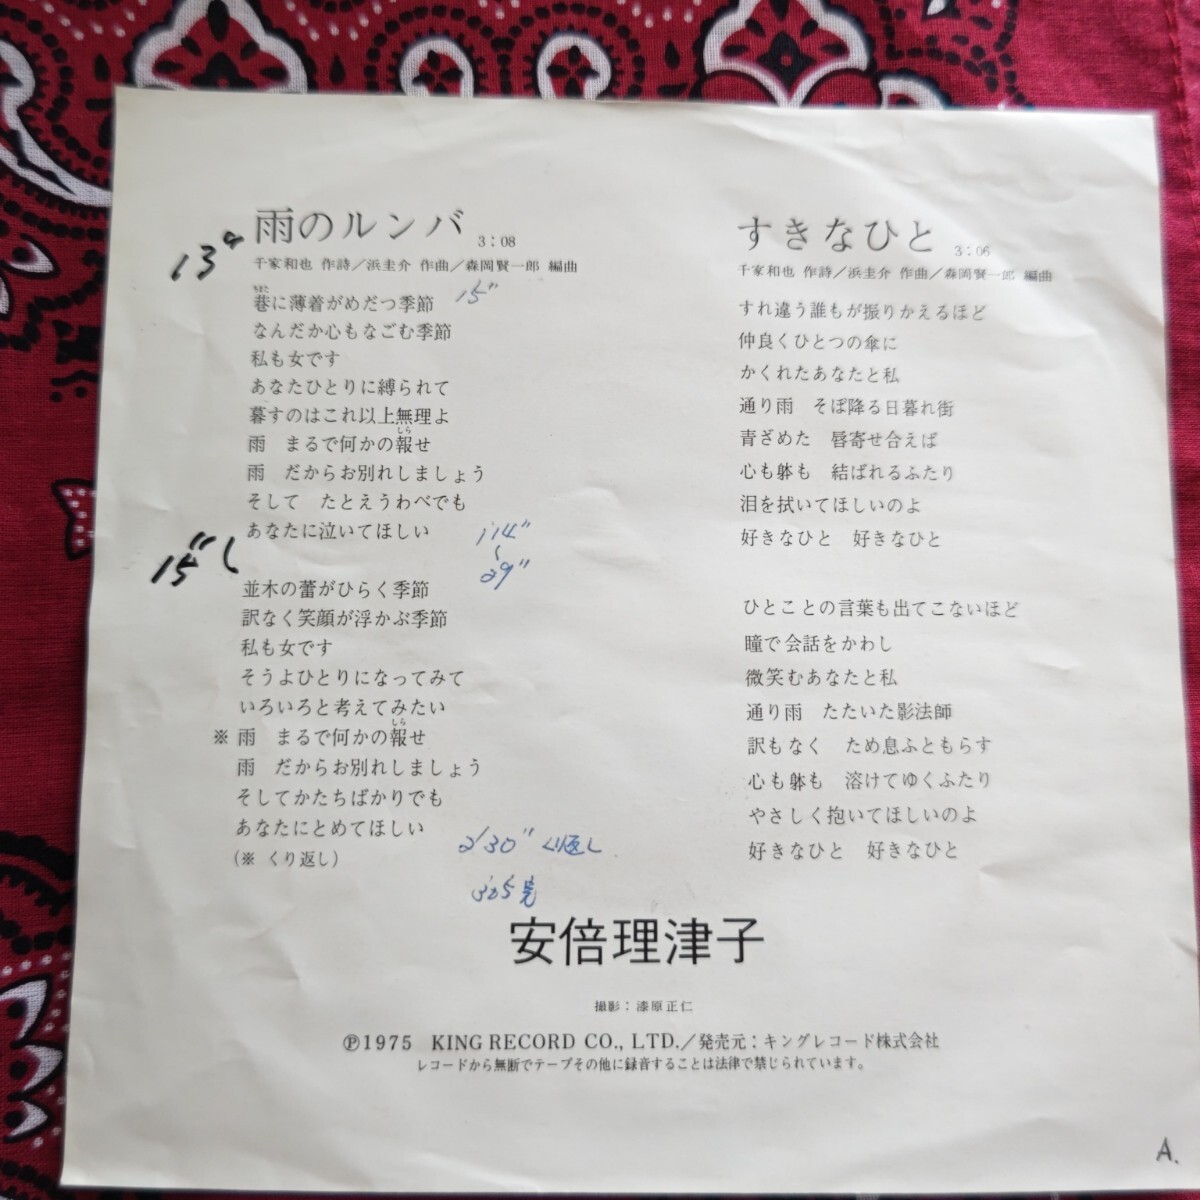 雨のルンバ 3:08
千家和也 作詩/浜圭介 作曲/森岡賢一郎 編曲
13"
巷に薄着がめだつ季節
15"
なんだか心もなごむ季節
私も女です
あなたひとりに縛られて
暮すのはこれ以上無理よ
雨 まるで何かの報せ
雨 だからお別れしましょう
そして たとえうわべでも
あなたに泣いてほしい
1'14"
〜
29"
15"
並木の蕾がひらく季節
訳なく笑顔が浮かぶ季節
私も女です
そうよひとりになってみて
いろいろと考えてみたい
※ 雨 まるで何かの報せ
雨 だからお別れしましょう
そしてかたちばかりでも
あなたにとめてほしい
(※ くり返し)
2'30" くり返し
3'05完
すきなひと 3:06
千家和也 作詩/浜圭介 作曲/森岡賢一郎 編曲
すれ違う誰もが振りかえるほど
仲良くひとつの傘に
かくれたあなたと私
通り雨 そぼ降る日暮れ街
青ざめた 唇寄せ合えば
心も躰も 結ばれるふたり
泪を拭いてほしいのよ
好きなひと 好きなひと
ひとことの言葉も出てこないほど
瞳で会話をかわし
微笑むあなたと私
通り雨 たたいた影法師
訳もなく ため息ふともらす
心も躰も 溶けてゆくふたり
やさしく抱いてほしいのよ
好きなひと 好きなひと
安倍理津子
撮影:漆原正仁
Ⓟ1975 KING RECORD CO., LTD./発売元:キングレコード株式会社
レコードから無断でテープその他に録音することは法律で禁じられています。
A.